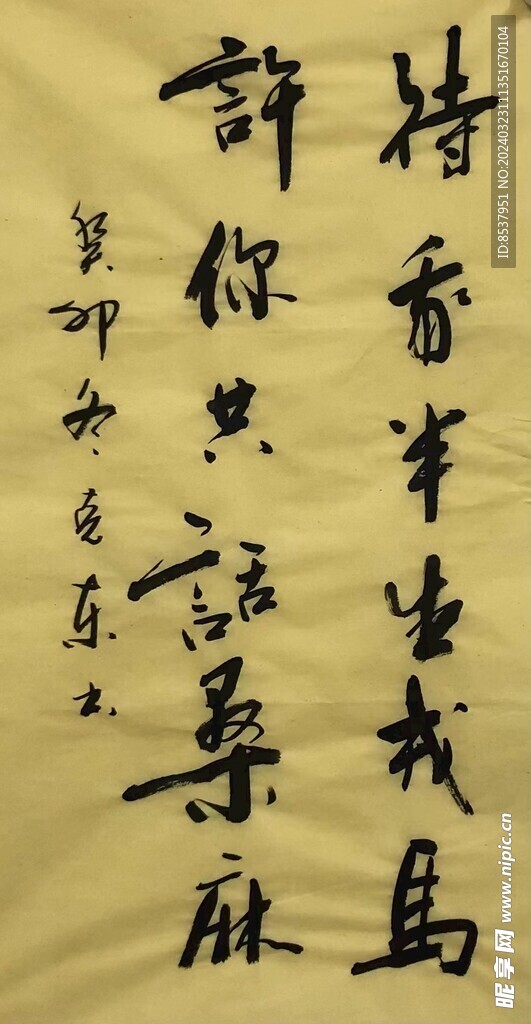 待我半生戎馬
許你共話桑麻
癸卯冬克东书
ID:8537951 NO:20240323111351670104
昵享网 www.nipic.cn